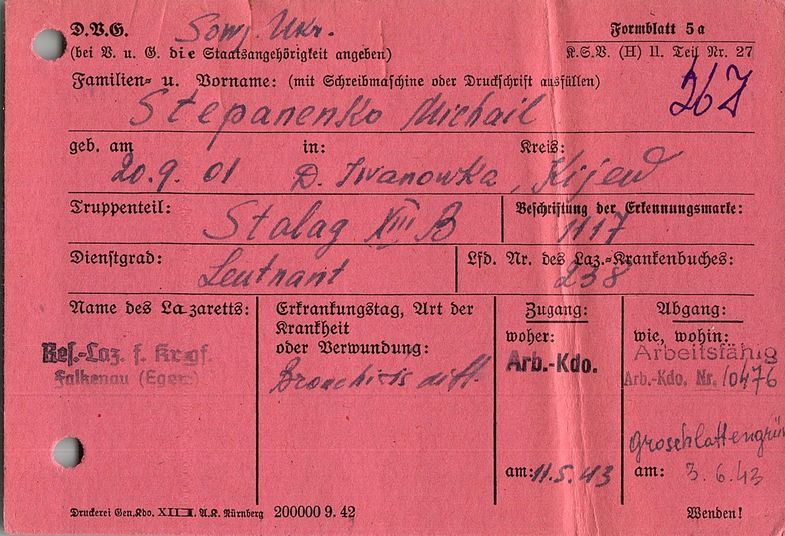 D.V.G. Sowj. Ukr. Formblatt 5a
(bei V. u. G. die Staatsangehörigkeit angeben) K.S.V. (H) 11. Teil Nr. 27
Familien- u. Vorname: (mit Schreibmaschine oder Druckschrift ausfüllen)
Stepanenko Michail
geb. am in: Kreis:
20.9.01 D. Iwanowka, Kijew
Truppenteil: Beschriftung der Erkennungsmarke:
Stalag XIII B 1117
Dienstgrad: Lfd. Nr. des Laz.-Krankenbuches:
Leutnant 238
Name des Lazaretts: Erkrankungstag, Art der Krankheit oder Verwundung: Zugang: Abgang:
woher: wie, wohin:
Res.-Laz. f. Krgf. Arb.-Kdo. Arbeitsfähig
Falkenau (Eger) Bronchitis diff. Arb.-Kdo. Nr. 10476
Groschlattengrün
am: 11.5.43 am: 3.6.43
Druckerei Gen.Kdo. XIII. A.K. Nürnberg 200000 9. 42 Wenden!